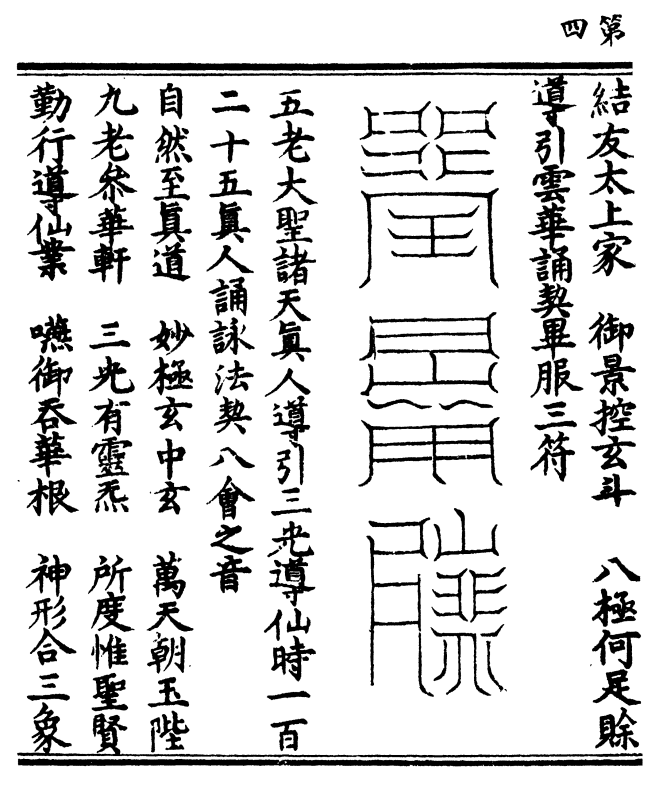 第四
結友太上家　御景控玄斗　八極何足賖
導引雲華誦契畢服三符
五老大聖諸天眞人導引三炁導仙時一百
二十五眞人誦詠法契八會之音
自然至眞道　妙極玄中玄　萬天朝玉陛
九老叅華軒　三光有靈炁　所度惟聖賢
勤行導仙業　嚥御吞華根　神形合三象